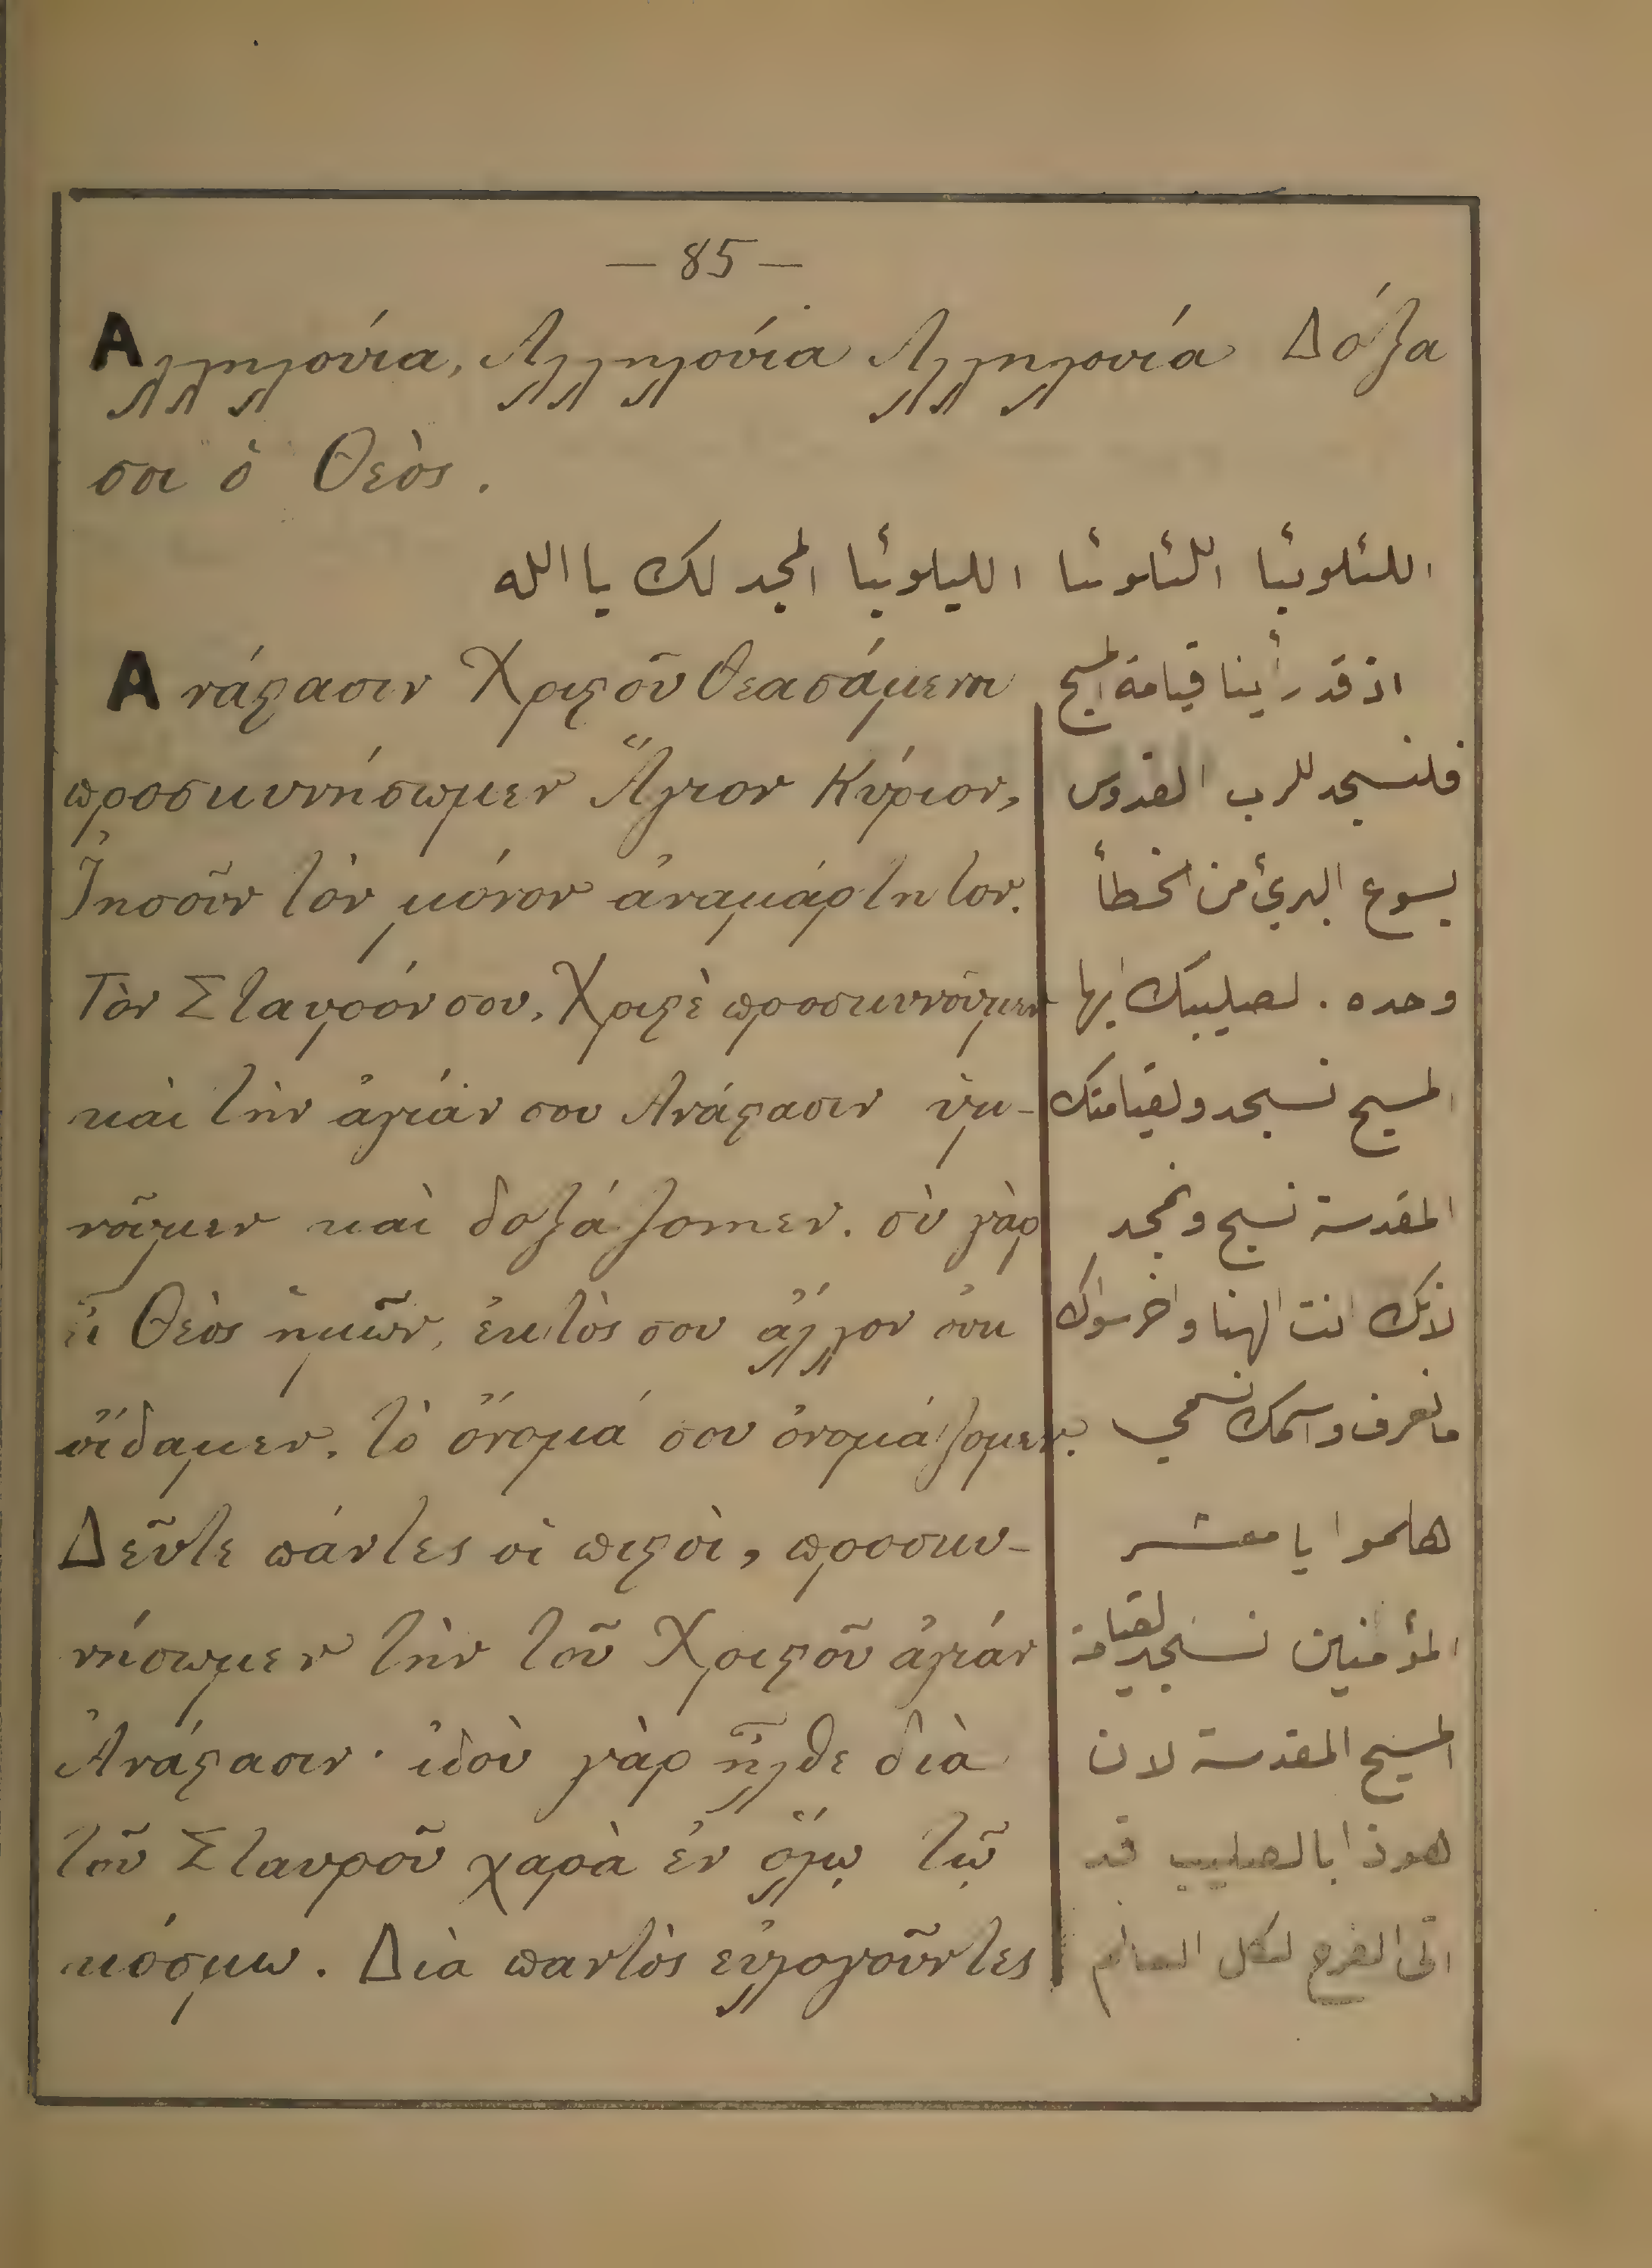 — 85 —
Αλληλούϊα, Αλληλούϊα Αλληλουϊά Δόξα
σοι ὁ Θεὸς.
الليئلوئيا الليئلوئيا الليلوئيا المجد لك يا الله
Ανάϛασιν Χριϛοῦ θεασάμενοι
προσκυνήσωμεν Ἅγιον Κύριον,
Ἰησοῦν τὸν μόνον ἀναμάρτητον.
Τὸν Σταυρόν σου, Χριϛὲ προσκυνοῦμεν
καὶ τὴν ἁγιάν σου Ανάϛασιν ὑμ-
νοῦμεν καὶ δοξάζομεν. σὺ γὰρ
εἶ Θεὸς ἡμῶν, ἐκτὸς σου ἄλλον οὐκ
οἴδαμεν. τὸ ὄνομά σου ὀνομάζομεν.
Δεῦτε πάντες οἱ πιϛοὶ, προσκυ-
νήσωμεν τὴν τοῦ Χριϛοῦ ἁγιάν
Ἀνάϛασιν· ἰδοὺ γὰρ ἦλθε διὰ
τοῦ Σταυροῦ χαρὰ ἐν ὅλῳ τῷ
κόσμω. Διὰ παντὸς εὐλογοῦντες
اذ قد رأينا قيامة المسيح
فلنسجد للرب القدوس
يسوع البرئ من الخطأ
وحده. لصليبك ايها
المسيح نسجد ولقيامتك
المقدسة نسبح ونمجد
لانك انت الهنا واخر سواك
ما نعرف واسمك نسمي
هلموا يا معشر
المؤمنين نسجد لقيامة
المسيح المقدسة لان
هوذا بالصليب قد
اتى الفرح لكل العالم